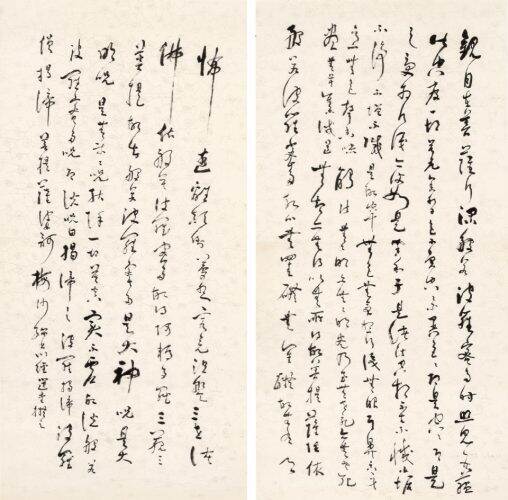 觀自在菩薩行深般若波羅蜜多時照見五蘊
皆空度一切苦厄舍利子色不異空空不異色色即是空空即是
色受想行識亦復如是舍利子是諸法空相不生不滅不垢
不淨不增不減是故空中無色無受想行識無眼耳鼻舌身
意無色聲香味觸法無眼界乃至無
盡無苦集滅道無智亦無得以無所得故菩提薩埵依
般若波羅蜜多故心無罣礙無罣礙故無有恐
怖遠離顛倒夢想究竟涅槃三世諸
佛依般若波羅蜜多故得阿耨多羅三藐三
菩提故知般若波羅蜜多是大神咒是大
明咒是無上咒能除一切苦真實不虛故說般若
波羅蜜多咒即說咒曰揭諦揭諦波羅揭諦波羅
僧揭諦菩提薩婆訶